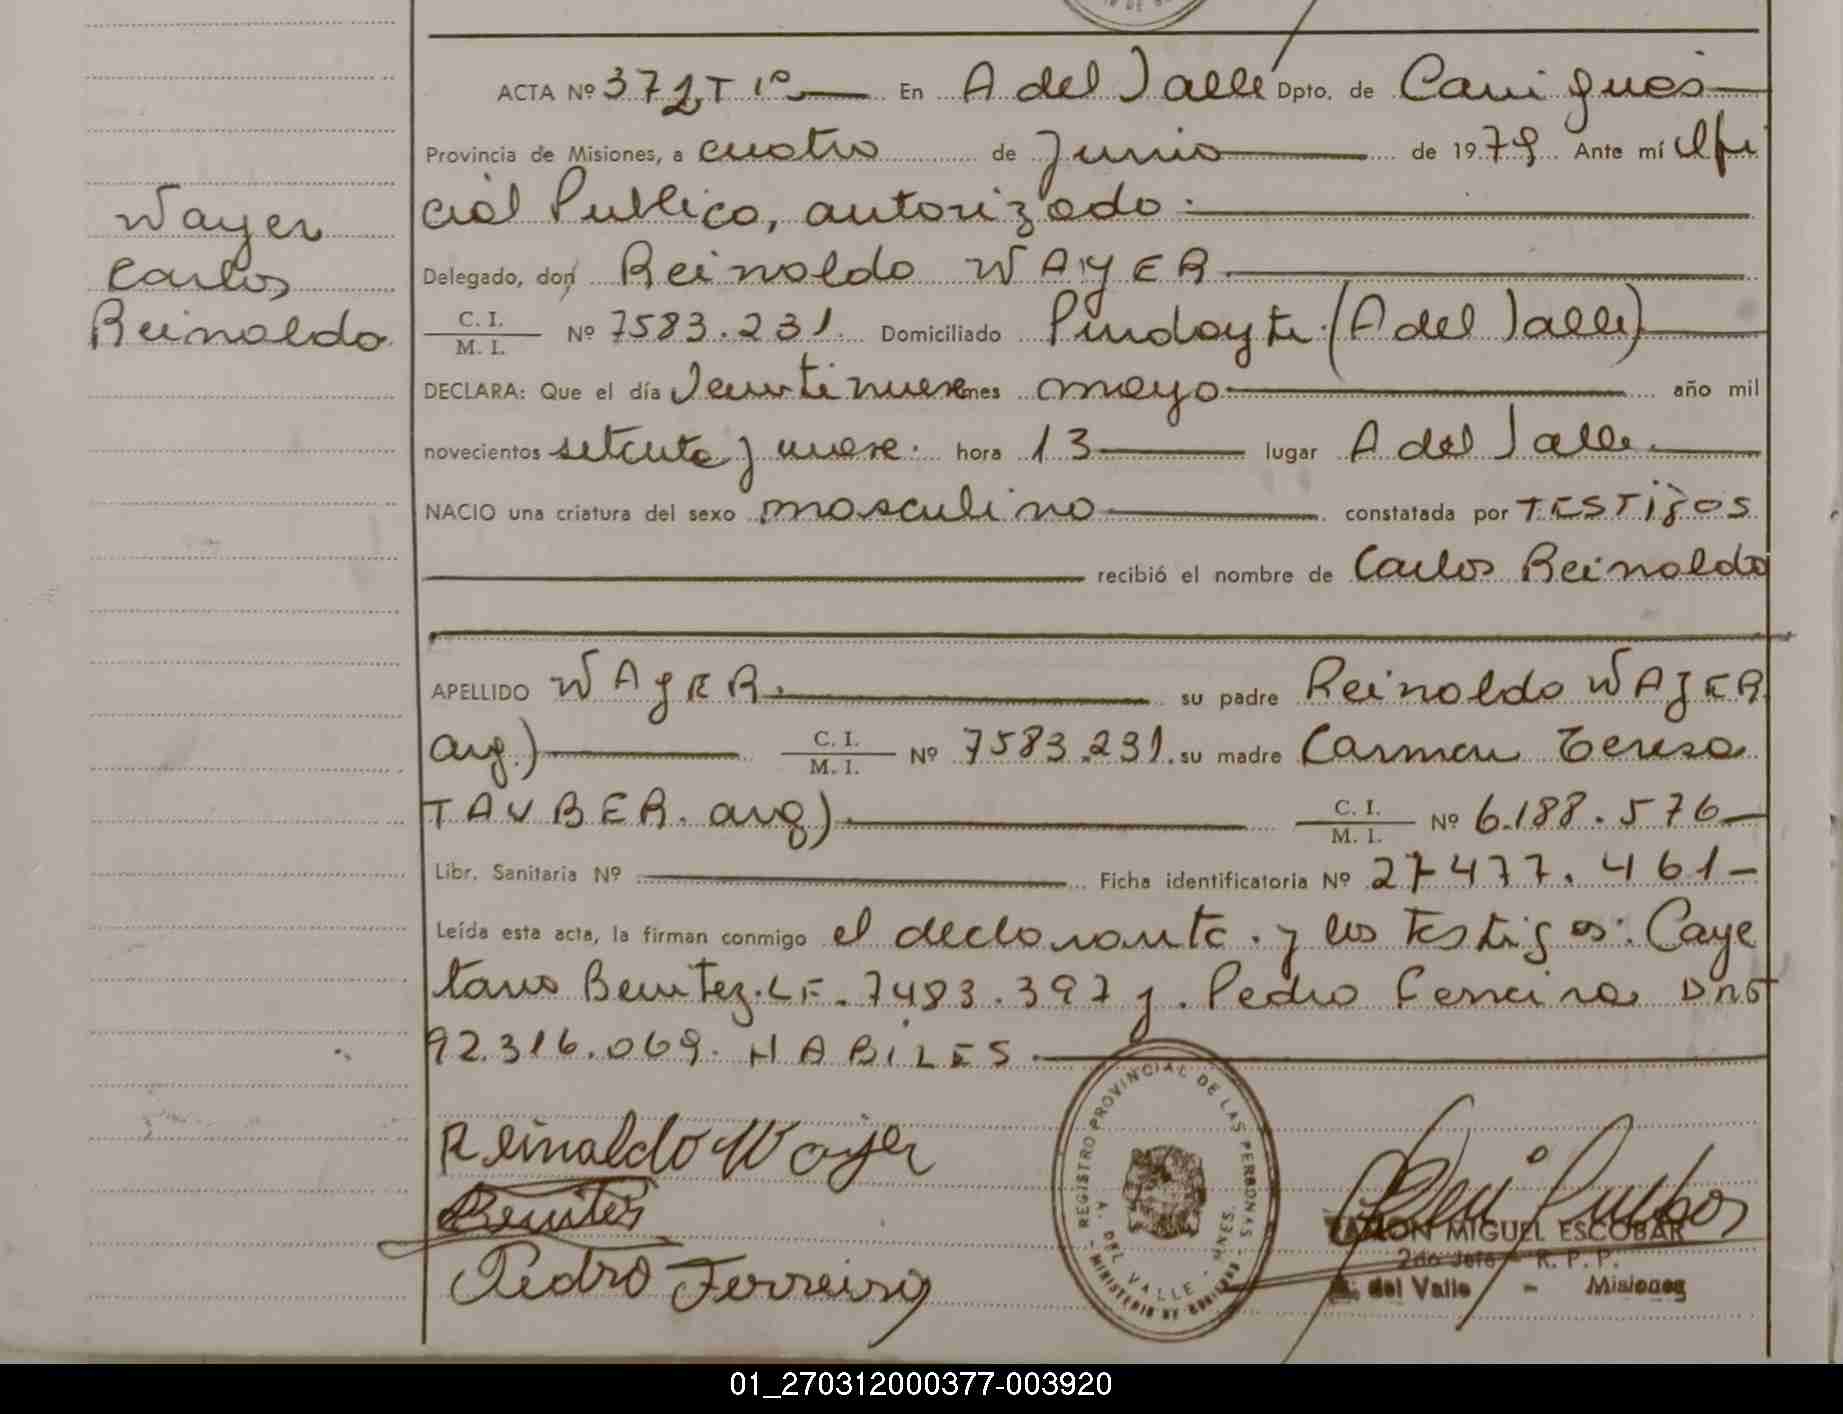 ACTA Nº 372 T 1º En A del Valle Dpto. de Cainguás
Provincia de Misiones, a cuatro de Junio de 1979 Ante mí Ofi
cial Publico, autorizado.
Delegado, don Reinaldo WAYER
C. I. / M. I. Nº 7583.231. Domiciliado Pindayti (A del Valle)
DECLARA: Que el día Veintinueve mes mayo año mil
novecientos setenta y nueve. hora 13 lugar A del Valle
NACIO una criatura del sexo masculino constatada por TESTigos
recibió el nombre de Carlos Reinaldo
APELLIDO WAYER. su padre Reinaldo WAYER
arg.) C. I. / M. I. Nº 7583.231. su madre Carmen Teresa
TAUBER. arg) C. I. / M. I. Nº 6.188.576
Libr. Sanitaria Nº Ficha identificatoria Nº 27477.461
Leída esta acta, la firman conmigo el declarante. y los testigos: Caye
tano Benitez. LE. 7483.397 y. Pedro Ferreira DNI
92.316.069. HABILES.
Wayer
Carlos
Reinaldo
Reinaldo Wayer
Benites
Pedro Ferreira
REGISTRO PROVINCIAL DE LAS PERSONAS
A. DEL VALLE - MNES.
MINISTERIO DE GOBIERNO
RAMON MIGUEL ESCOBAR
2do Jefe - R. P. P.
A. del Valle - Misiones
01_270312000377-003920